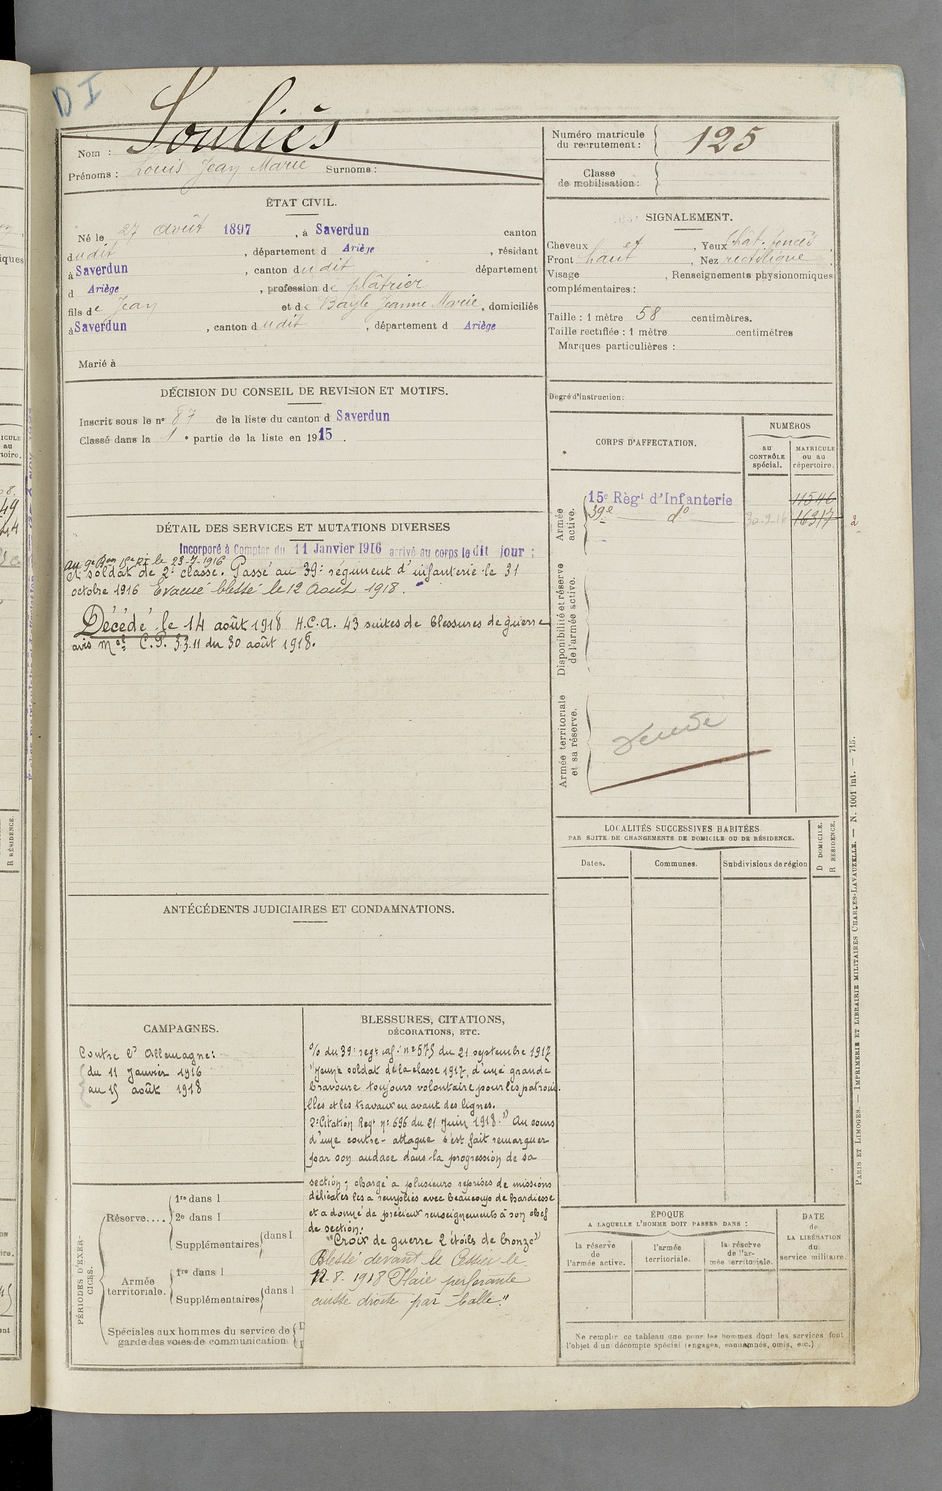 D I
Nom : Souliès
Prénoms : Louis Jean Marie Surnoms :
Numéro matricule du recrutement : 125
Classe de mobilisation :
ÉTAT CIVIL.
Né le 27 août 1897, à Saverdun canton
dudit, département d Ariège, résidant
à Saverdun, canton dudit département
d Ariège, profession de plâtrier
fils de Jean et de Bayle Jeanne Marie, domiciliés
à Saverdun, canton dudit, département d Ariège
Marié à
SIGNALEMENT.
Cheveux et, Yeux chât. foncés,
Front haut, Nez rectiligne,
Visage, Renseignements physionomiques
complémentaires :
Taille : 1 mètre 58 centimètres.
Taille rectifiée : 1 mètre centimètres
Marques particulières :
Degré d'instruction :
DÉCISION DU CONSEIL DE REVISION ET MOTIFS.
Inscrit sous le no 87 de la liste du canton d Saverdun
Classé dans la 1e partie de la liste en 1915.
CORPS D'AFFECTATION.
NUMÉROS
AU CONTRÔLE spécial.
MATRICULE ou au répertoire.
Armée active.
15e Régt d'Infanterie 11546
39e do 30-9-16 16317 2
Disponibilité et réserve de l'armée active.
Armée territoriale et sa réserve.
DÉTAIL DES SERVICES ET MUTATIONS DIVERSES
Incorporé à Compter du 11 Janvier 1916 arrivé au corps le dit jour :
au 9e Bon 15e RI le 23-7-1916
et soldat de 2e classe. Passé au 39e régiment d'infanterie le 31
octobre 1916 Evacué blessé le 12 Août 1918.
Décédé le 14 août 1918 H.C.A. 43 suites de blessures de guerre
avis Mel C.P. 5311 du 30 août 1918.
LOCALITÉS SUCCESSIVES HABITÉES
PAR SUITE DE CHANGEMENTS DE DOMICILE OU DE RÉSIDENCE.
Dates.
Communes.
Subdivisions de région
D DOMICILE.
R RÉSIDENCE.
ANTÉCÉDENTS JUDICIAIRES ET CONDAMNATIONS.
CAMPAGNES.
Contre l'Allemagne :
du 11 Janvier 1916
au 15 août 1918
BLESSURES, CITATIONS,
DÉCORATIONS, ETC.
O/ du 39e regt inf. no 575 du 21 septembre 1917
"Jeune soldat de la classe 1917, d'une grande
bravoure toujours volontaire pour les patroui-
lles et les travaux en avant des lignes.
2e Citation Regt no 696 du 21 Juin 1918 " Au cours
d'une contre-attaque s'est fait remarquer
par son audace dans la progression de sa
section ; chargé à plusieurs reprises de missions
délicates les a remplies avec beaucoup de hardiesse
et a donné de précieux renseignements à son chef
de section.
"Croix de guerre 2 étoiles de bronze"
Blessé devant le Cessier le
12.8.1918 Plaie perforante
cuisse droite par balle."
PÉRIODES D'EXERCICES.
Réserve....
1re dans l
2e dans l
Supplémentaires dans l
Armée territoriale.
1re dans l
Supplémentaires dans l
Spéciales aux hommes du service de garde des voies de communication.
ÉPOQUE
A LAQUELLE L'HOMME DOIT PASSER DANS :
la réserve de l'armée active.
l'armée territoriale.
la réserve de l'armée territoriale.
DATE de LA LIBÉRATION du service militaire.
Ne remplir ce tableau que pour les hommes dont les services font
l'objet d'un décompte spécial (engagés, condamnés, omis, etc.)
PARIS ET LIMOGES. — IMPRIMERIE ET LIBRAIRIE MILITAIRES CHARLES-LAVAUZELLE. — N. 1001 int. — 715.